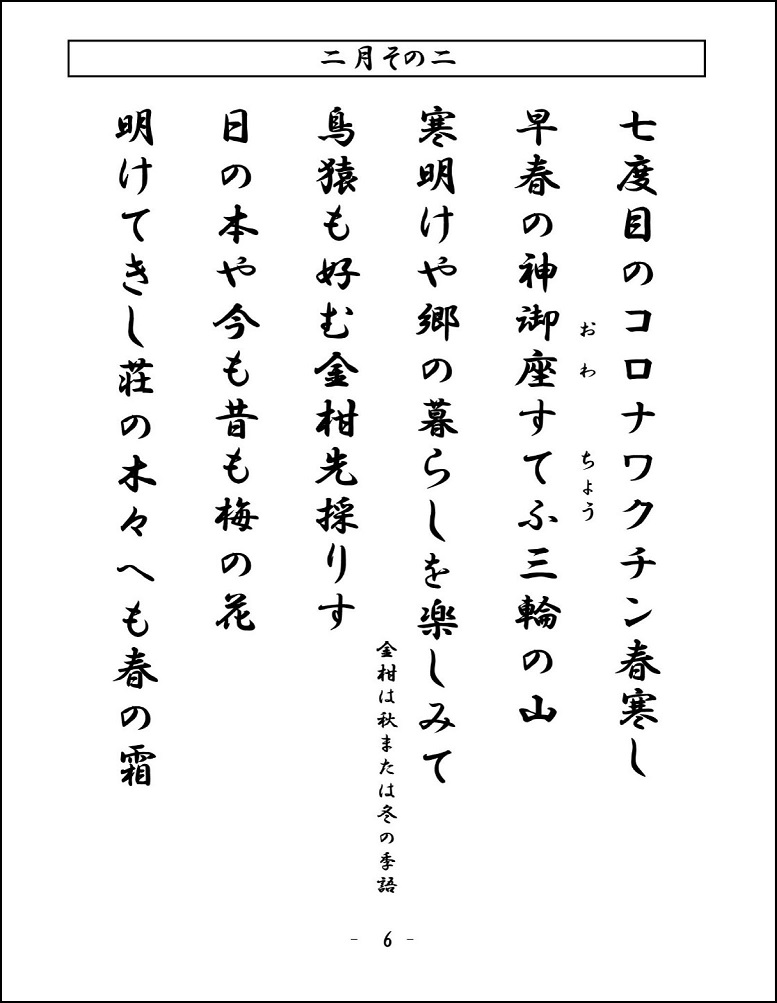 二月その二
七度目のコロナワクチン春寒し
おわ
ちょう
早春の神御座すてふ三輪の山
寒明けや郷の暮らしを楽しみて
金柑は秋または冬の季語
鳥猿も好む金柑先採りす
日の本や今も昔も梅の花
明けてきし荘の木々へも春の霜
- 6 -